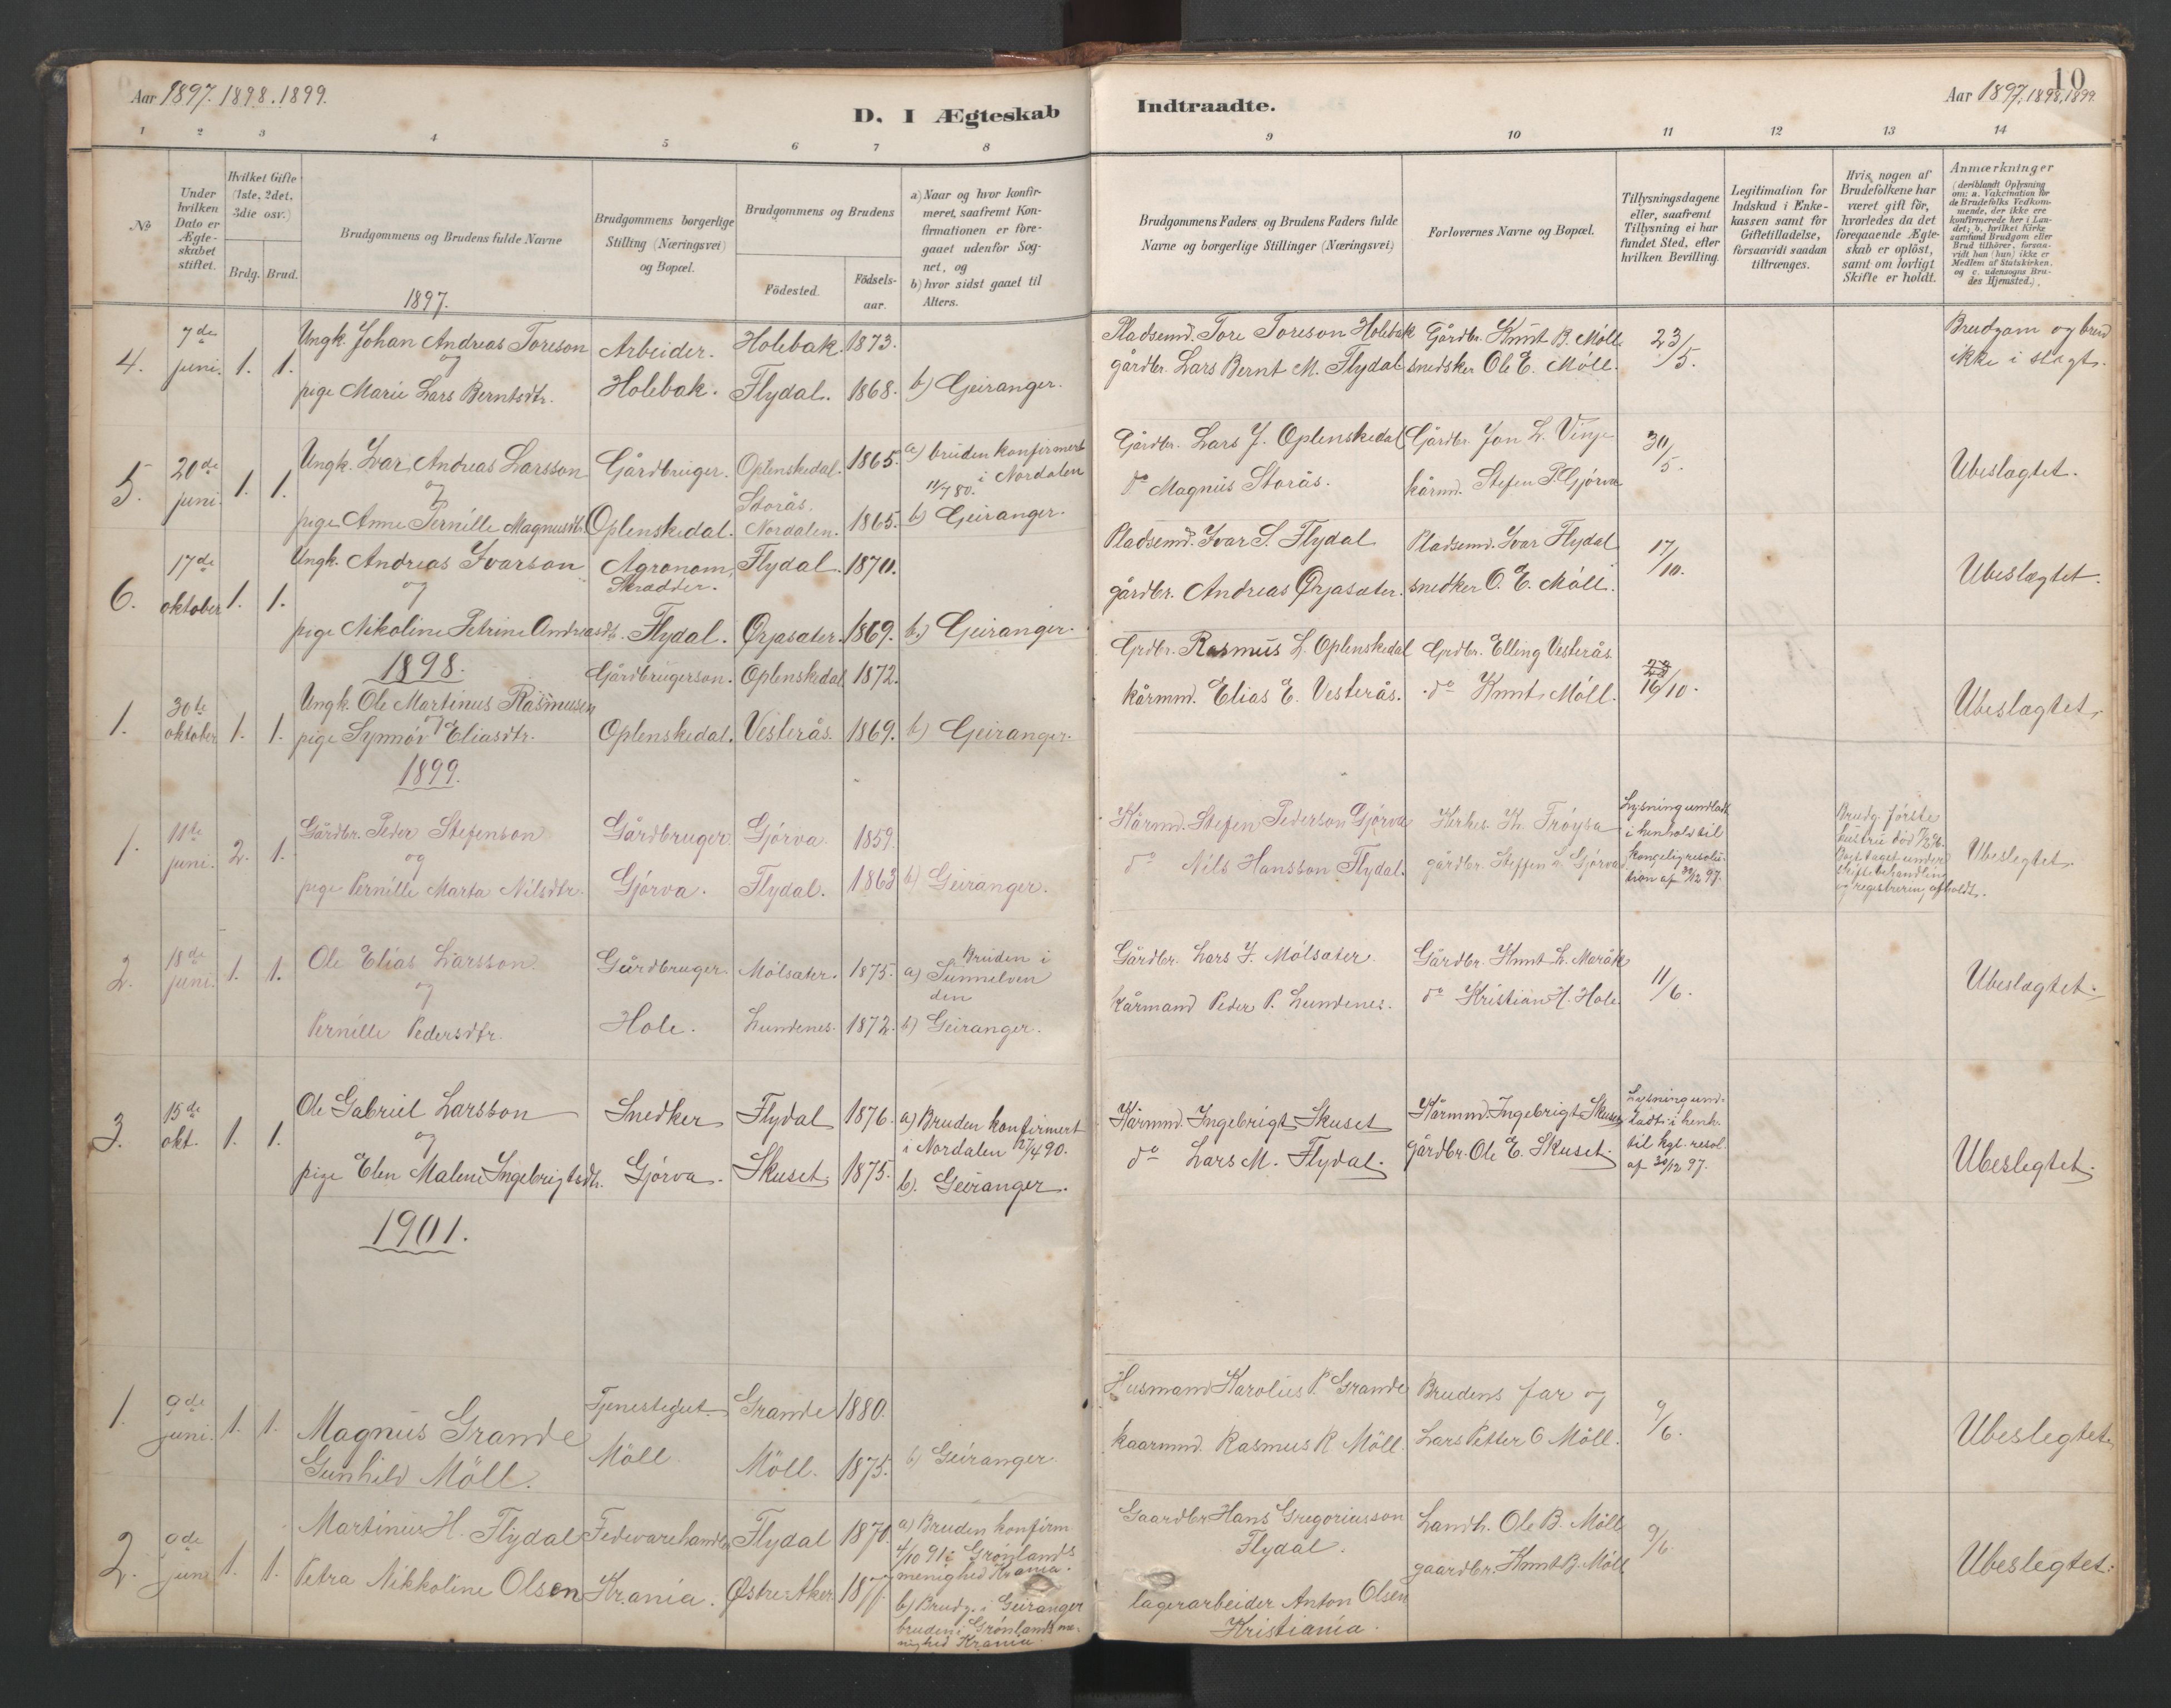 Aar 1897. 1898. 1899.
D. I Ægteskab
1 2 3 4 5 6 7 8
№
Under hvilken Dato er Ægteskabet stiftet.
Hvilket Gifte (1ste, 2det, 3die osv.)
Brdg. Brud.
Brudgommens og Brudens fulde Navne
Brudgommens borgerlige Stilling (Næringsvei) og Bopæl.
Brudgommens og Brudens
Födested.
Födsels-aar.
a) Naar og hvor konfir-
meret, saafremt Kon-
firmationen er fore-
gaaet udenfor Sog-
net, og
b) hvor sidst gaaet til
Alters.
1897.
4. 7de juni. 1. 1.
Ungk. Johan Andreas Toreson
og
pige Marie Lars Berntsdtr.
Arbeider.
Holebak.
Holebak. 1873.
Flydal. 1868.
b) Geiranger.
5. 20de juni. 1. 1.
Ungk. Ivar Andreas Larsson
og
pige Anne Pernille Magnusdtr.
Gårdbruger.
Oplenskedal.
Oplenskedal. 1865.
Storås.
Nordalen. 1865.
a) bruden konfirmert
11/7 80. i Nordalen
b) Geiranger.
6. 17de oktober 1. 1.
Ungk. Andreas Ivarson
og
pige Nikoline Petrine Andreasdt.
Agronom,
Skradder.
Flydal.
Flydal. 1870.
Ørjasater. 1869.
b) Geiranger.
1898.
1. 30te oktober 1. 1.
Ungk. Ole Martinus Rasmusen
og
pige Synnöv Eliasdtr.
Gårdbrugerson.
Oplenskedal.
Oplenskedal 1872.
Vesterås. 1869.
b) Geiranger.
1899.
1. 11te juni. 2. 1.
Gårdbr. Peder Stefenson
og
pige Pernille Marta Nilsdtr.
Gårdbruger.
Gjörva.
Gjörva. 1859.
Flydal. 1863
b) Geiranger.
2. 18de juni. 1. 1.
Ole Elias Larsson.
og
Pernille Pedersdtr.
Gårdbruger.
Hole.
Mólsater. 1875.
Lundenes. 1872.
Bruden i
a) Sunnelven
den
b) Geiranger.
3. 15de okt. 1. 1.
Ole Gabriel Larsson
og
pige Elen Malene Ingebrigtsdtr.
Snedker
Gjörva.
Flydal 1876.
Skuset 1875.
a) Bruden konfirmert
i Nordalen 27/4 90.
b). Geiranger.
1901.
1. 9de juni. 1. 1.
Magnus Grande
Gunhild Möll.
Tjenestegut
Möll
Grande 1880.
Möll. 1875.
b) Geiranger.
2. 9de juni 1. 1.
Martinus H. Flydal
Petra Nikkoline Olsen
Fedevarehandler
Kr.ania.
Flydal 1870.
Østre-Aker. 1877.
a) Bruden konfirm
4/10 91 i Grönlands
menighed Kr.ania.
b) Brudg. i Geiranger
bruden i Grönlands me-
nighed Kr.ania.
10
Aar 1897, 1898, 1899.
Indtraadte.
9 10 11 12 13 14
Brudgommens Faders og Brudens Faders fulde Navne og borgerlige Stillinger (Næringsvei)
Forlovernes Navne og Bopæl.
Tillysningsdagene eller, saafremt Tillysning ei har fundet Sted, efter hvilken Bevilling.
Legitimation for Indskud i Enke-kassen samt for Giftetilladelse, forsaavidt saadan tiltrænges.
Hvis nogen af Brudefolkene har været gift för, hvorledes da det foregaaende Ægte-skab er oplöst, samt om lovligt Skifte er holdt.
Anmærkninger
(deriblandt Oplysning om: a. Vakcination for de Brudefolks Vedkom-mende, der ikke ere konfirmerede her i Lan-det; b. hvilket Kirke-samfund Brudgom eller Brud tilhörer, forsaa-vidt han (hun) ikke er Medlem af Statskirken, og c. udensogns Bru-des Hjemsted.).
Pladsemd. Tore Toreson Holebak
gårdbr. Lars Bernt M. Flydal
Gårdbr. Knut B. Mölle
snedsker Ole E. Möll.
23/5.
Brudgom og brud
ikke i slagt.
Gårdbr. Lars J. Oplenskedal
do Magnus Storås.
Gårdbr. Jon L. Vinje
kårmd. Stefen P. Gjörva
30/5.
Ubeslagtet.
Pladsemd. Ivar S. Flydal
gårdbr. Andreas Ørjasater.
Pladsemd. Ivar Flydal
snedker O. E. Möll.
17/10.
Ubeslægtet.
Grdbr. Rasmus L. Oplenskedal
kårmd. Elias E. Vesterås.
Grdbr. Elling Vesterås.
do Knut Möll.
16/10.
Ubeslagtet.
Kårmd. Stefen Pederson Gjörva
do Nils Hansson Flydal.
Kirkes. K. Fröysa
gårdbr. Steffen L. Gjörva
Lysning undladt
i henhold til
kongelig resolu-
tion af 30/12 97.
Brudg. förste
hustru död
Boet taget under
skiftebehandling
og registrering afholdt.
Ubeslegtet.
Gårdbr. Lars J. Mólsater.
Kårmand Peder P. Lundenes.
Gårdbr. Knut L. Maråk
do Kristian H. Hole.
11/6.
Ubeslagtet.
Kårmd. Ingebrigt Skuset
do Lars M. Flydal.
Kårmd. Ingebrigt Skuset
gårdbr. Ole E. Skuset.
Lysning und-
ladt i henh.
til kgl. resol.
af 30/12 97.
Ubeslegtet.
Husmand Karolius P. Grande
kaarmd. Rasmus R Möll.
Brudens far og
Lars Petter O Möll.
9/6.
Ubeslegtet.
Gaardbr Hans Gregoriusson
Flydal.
lagerarbeider Anton Olsen
Kristiania.
Landh. Ole B. Möll
gaardbr. Knut B. Möll
9/6.
Ubeslegtet.